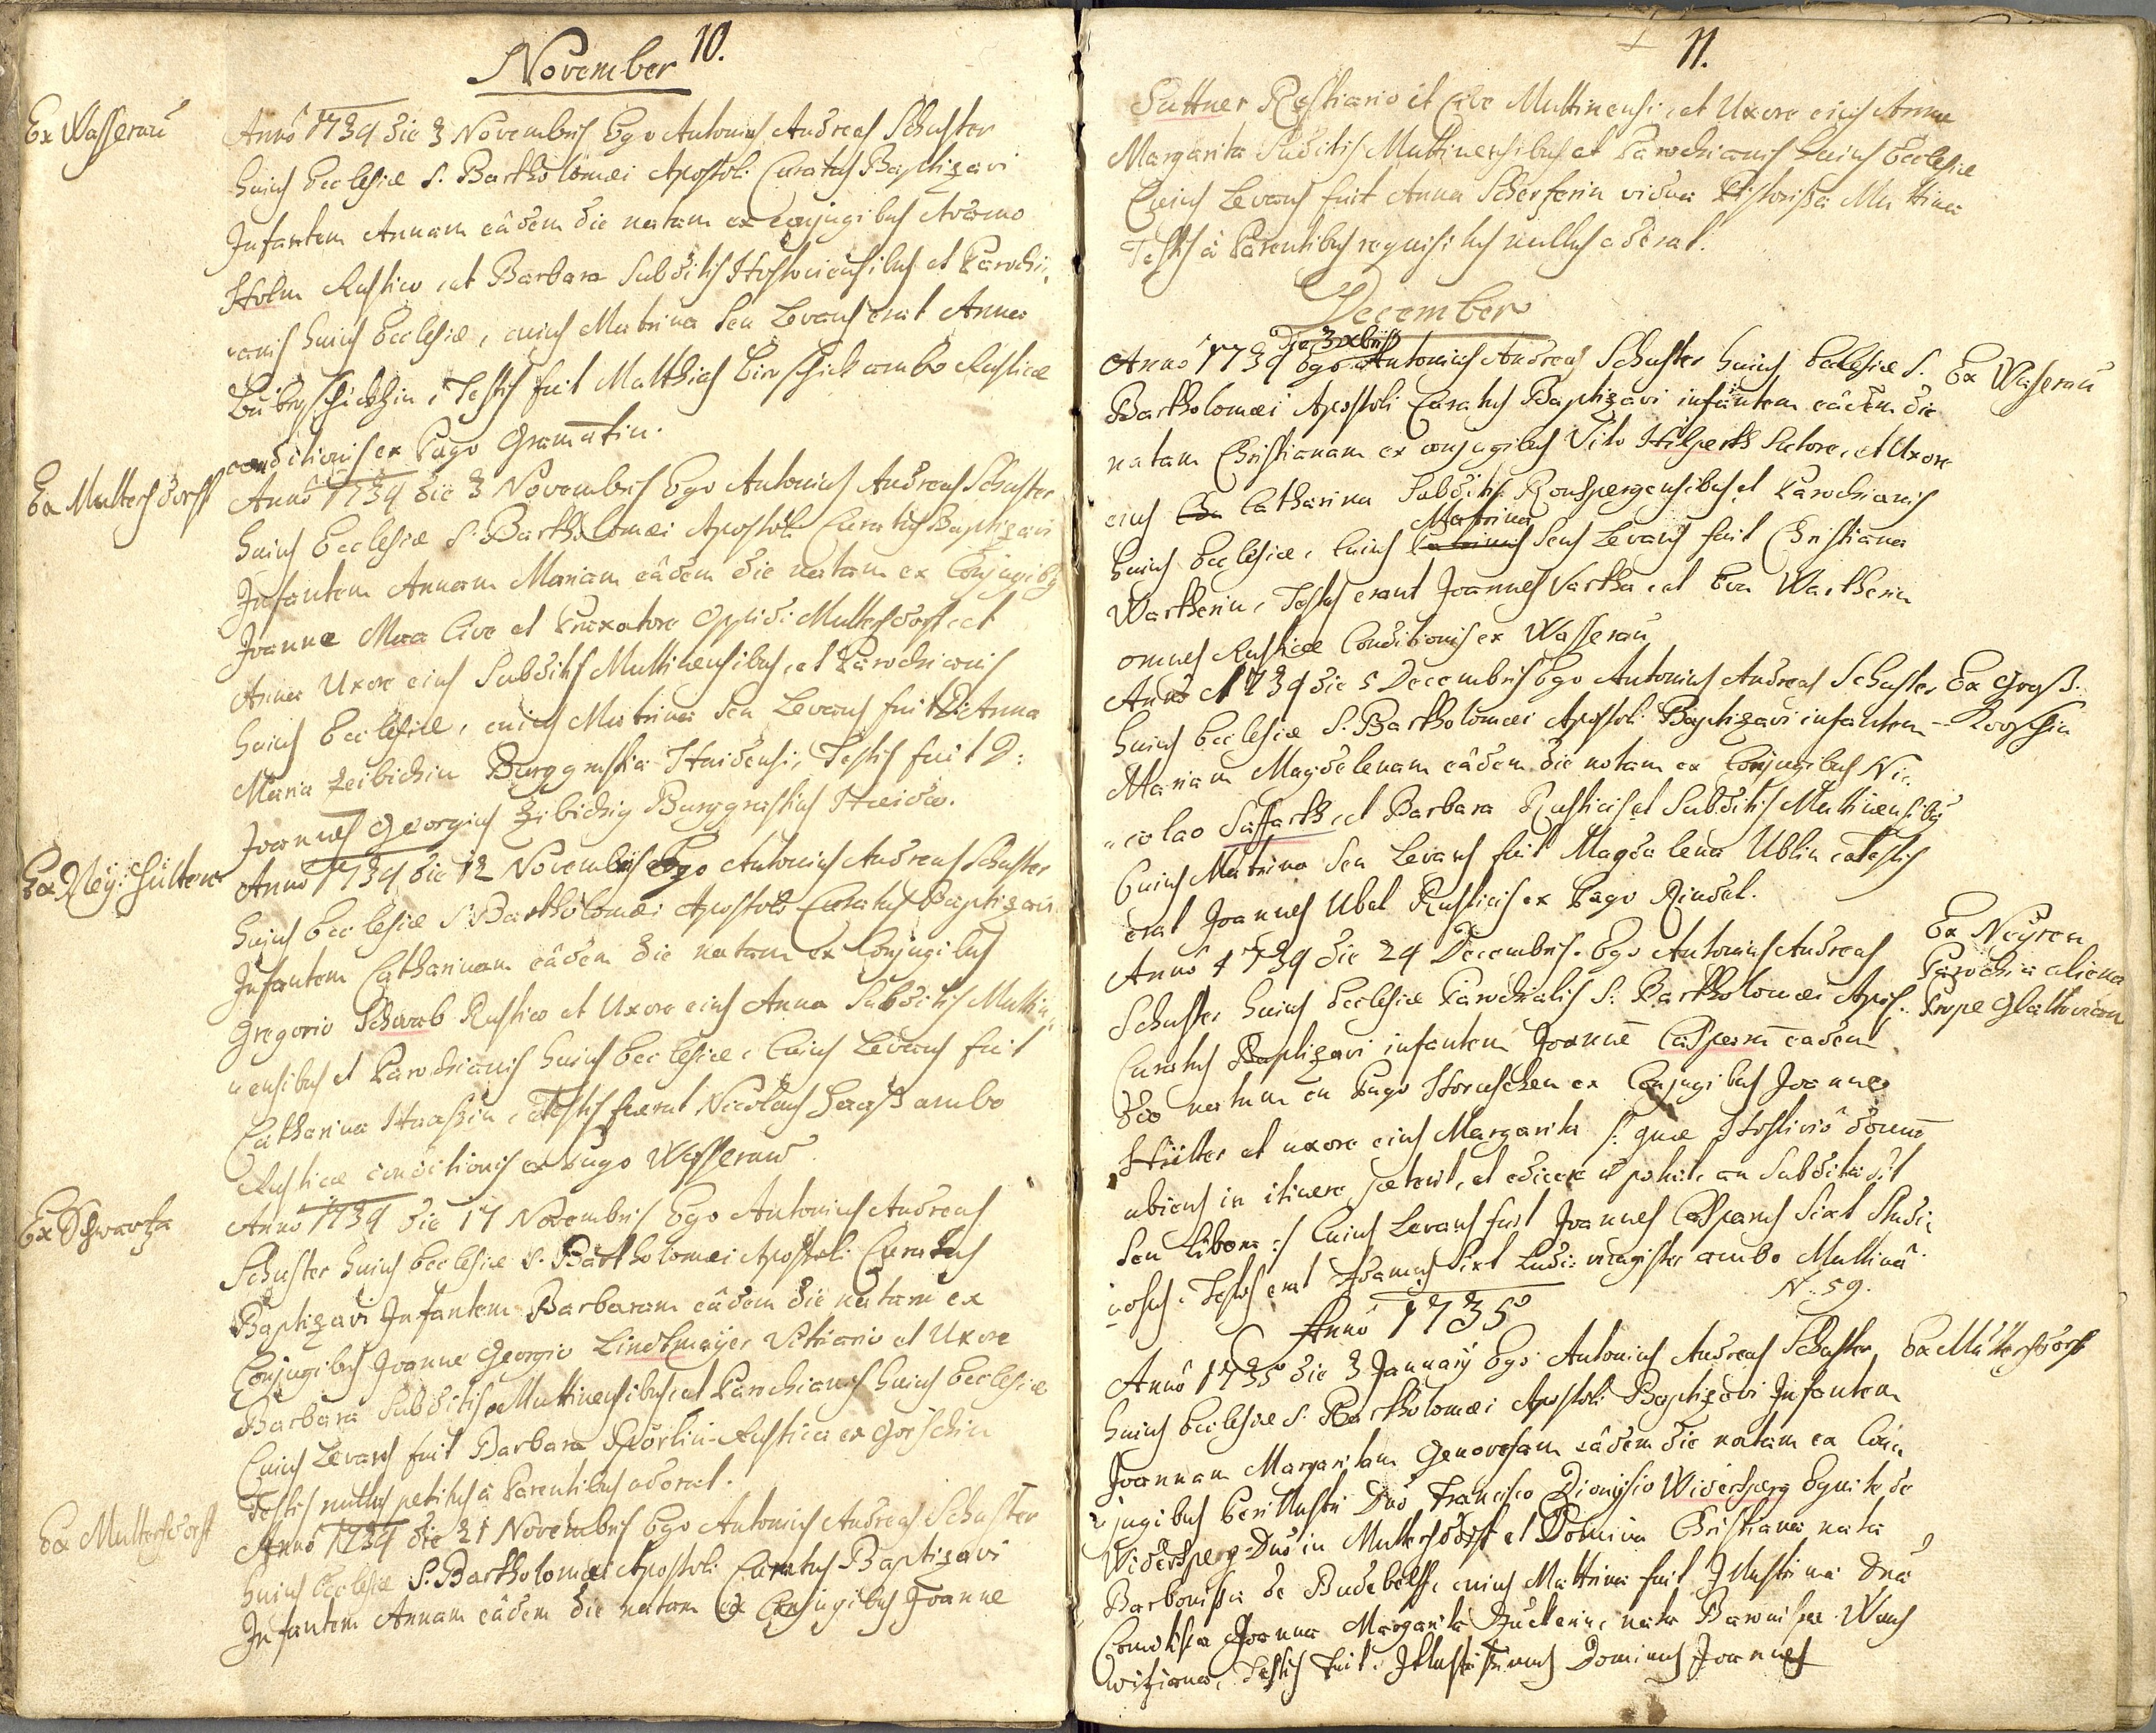 10.
November
Ex Wasserau
Anno 1734 die 3 Novembris Ego Antonius Andreas Schuster
huius Ecclesiæ S. Bartholomæi Apostoli Curatus Baptizavi
Infantem Annam eâdem die natam ex conjugibus Adamo
Holm Rustico et Barbara Subditis Hostoviensibus et Parochi-
anis huius Ecclesiæ, cuius Matrina seu Levans erat Anna
Testis fuit Matthias ambo Rusticæ
conditionis ex Pago Gramatin.
Ex Muttersdorff
Anno 1734 die 3 Novembris Ego Antonius Andreas Schuster
huius Ecclesiæ S. Bartholomæi Apostoli Curatus Baptizavi
Infantem Annam Mariam eâdem die natam ex Conjugibus
Joanne Mra Cive et Braxatore Oppidi Muttersdorff, et
Anna Uxore eius Subditis Muttinensibus, et Parochianis
huius Ecclesiæ, cuius Matrina seu Levans fuit D: Anna
Maria Zeibichin Burggrafia Haidensi, Testis fuit D:
Joannes Georgius Zibichig Burggrafius Haidæ.
Ex Neÿ: Hütten
Anno 1734 die 12 Novembris Ego Antonius Andreas Schuster
huius Ecclesiæ S. Bartholomæi Apostoli Curatus Baptizavi
Infantem Catharinam eâdem die natam ex Conjugibus
Gregorio Schwab Rustico et Uxore eius Anna Subditis Mutti-
nensibus et Parochianis huius Ecclesiæ, Cuius Levans fuit
Catharina Haaßin, Testis fuerat Nicolaus Haaß ambo
Rusticæ conditionis ex Pago Wasseraw.
Ex Schwartza
Anno 1734 die 17 Novembris Ego Antonius Andreas
Schuster huius Ecclesiæ S. Bartholomæi Apostoli Curatus
Baptizavi Infantem Barbaram eâdem die natam ex
Conjugibus Joanne Georgio Lindtmayer Vitriario et Uxore
Barbara Subditis Muttinensibus, et Parochianis huius Ecclesiæ
Cuius Levans fuit Barbara Spörlin Rustica ex Gorschin
Testis nullus petitus à Parentibus aderat.
Ex Muttersdorff
Anno 1734 die 21 Novembris Ego Antonius Andreas Schuster
huius Ecclesiæ S. Bartholomæi Apostoli Curatus Baptizavi
Infantem Annam eâdem die natam ex Conjugibus Joanne
11.
Suttner Restiario et Cive Muttinensi, et Uxore eius Anna
Margarita Subditis Muttinensibus et Parochianis huius Ecclesiæ
Cuius Levans fuit Anna Scherferin vidua Pistorissa Muttina
Testis à Parentibus requisitus nullus aderat.
December
die 3 xbris
Anno 1734 Ego Antonius Andreas Schuster huius Ecclesiæ S.
Ex Wasserau
Bartholomæi Apostoli Curatus Baptizavi infantem eâdem die
natam Christianam ex conjugibus Vito Hilperth Sutore, et Uxore
eius Catharina Subditis Ronspergensibus et Parochianis
Matrina
huius Ecclesiæ, Cuius seu Levans fuit Christiana
Wartherin, Testes erant Joannes Vartha, et Eva Wartherin
omnes Rusticæ Conditionis ex Wasserau
Anno 1734 die 5 Decembris Ego Antonius Andreas Schuster
Ex Groß.
huius Ecclesiæ S. Bartholomæi Apostoli Baptizavi infantem
Gorschin
Mariam Magdalenam eâdem die natam ex Conjugibus Ni-
colao Saffarth, et Barbara Rusticis et Subditis Muttinensibus
Cuius Matrina seu Levans fuit Magdalena Ublin, Testis
erat Joannes Ubel Rusticis ex Pago Rindel.
Anno 1734 die 24 Decembris. Ego Antonius Andreas
Ex Neÿren
Parochia aliena
Prope Glattoviam
Schuster huius Ecclesiæ Parochialis S. Bartholomæi Apost.
Curatus Baptizavi infantem Joannē Casparū eadem
die natum in Pago Horuschen ex Conjugibus Joanne
Hütter et uxore eius Margarita /: quæ Hostiviô domū
abiens in itinere peperit, et edicere ñ potuit, an Subdita sit
seu Libera :/ Cuius Levans fuit Joannes Casparus Sixt Studi-
osus, Testis erat Adamus Sixt Ludi: magister ambo Muttinâ.
N: 59.
Anno 1735
Anno 1735 die 3 Januarÿ Ego Antonius Andreas Schuster
Ex Muttersdorff
huius Ecclesiæ S. Bartholomæi Apostoli Baptizavi Infantem
Joannam Margaritam Genovefam eâdem die natam ex Con-
jugibus Perillustri Dnō Francisco Dionysio Widersperg Equite de
Widersperg Dnō in Muttersdorff et Domina Christiana nata
Baronissa de cuius Mattrina fuit Illustrissima Dnā
Comitissa Joanna Margarita nata Baronissa
Testis fuit. Illustrissimus Dominus Joannes